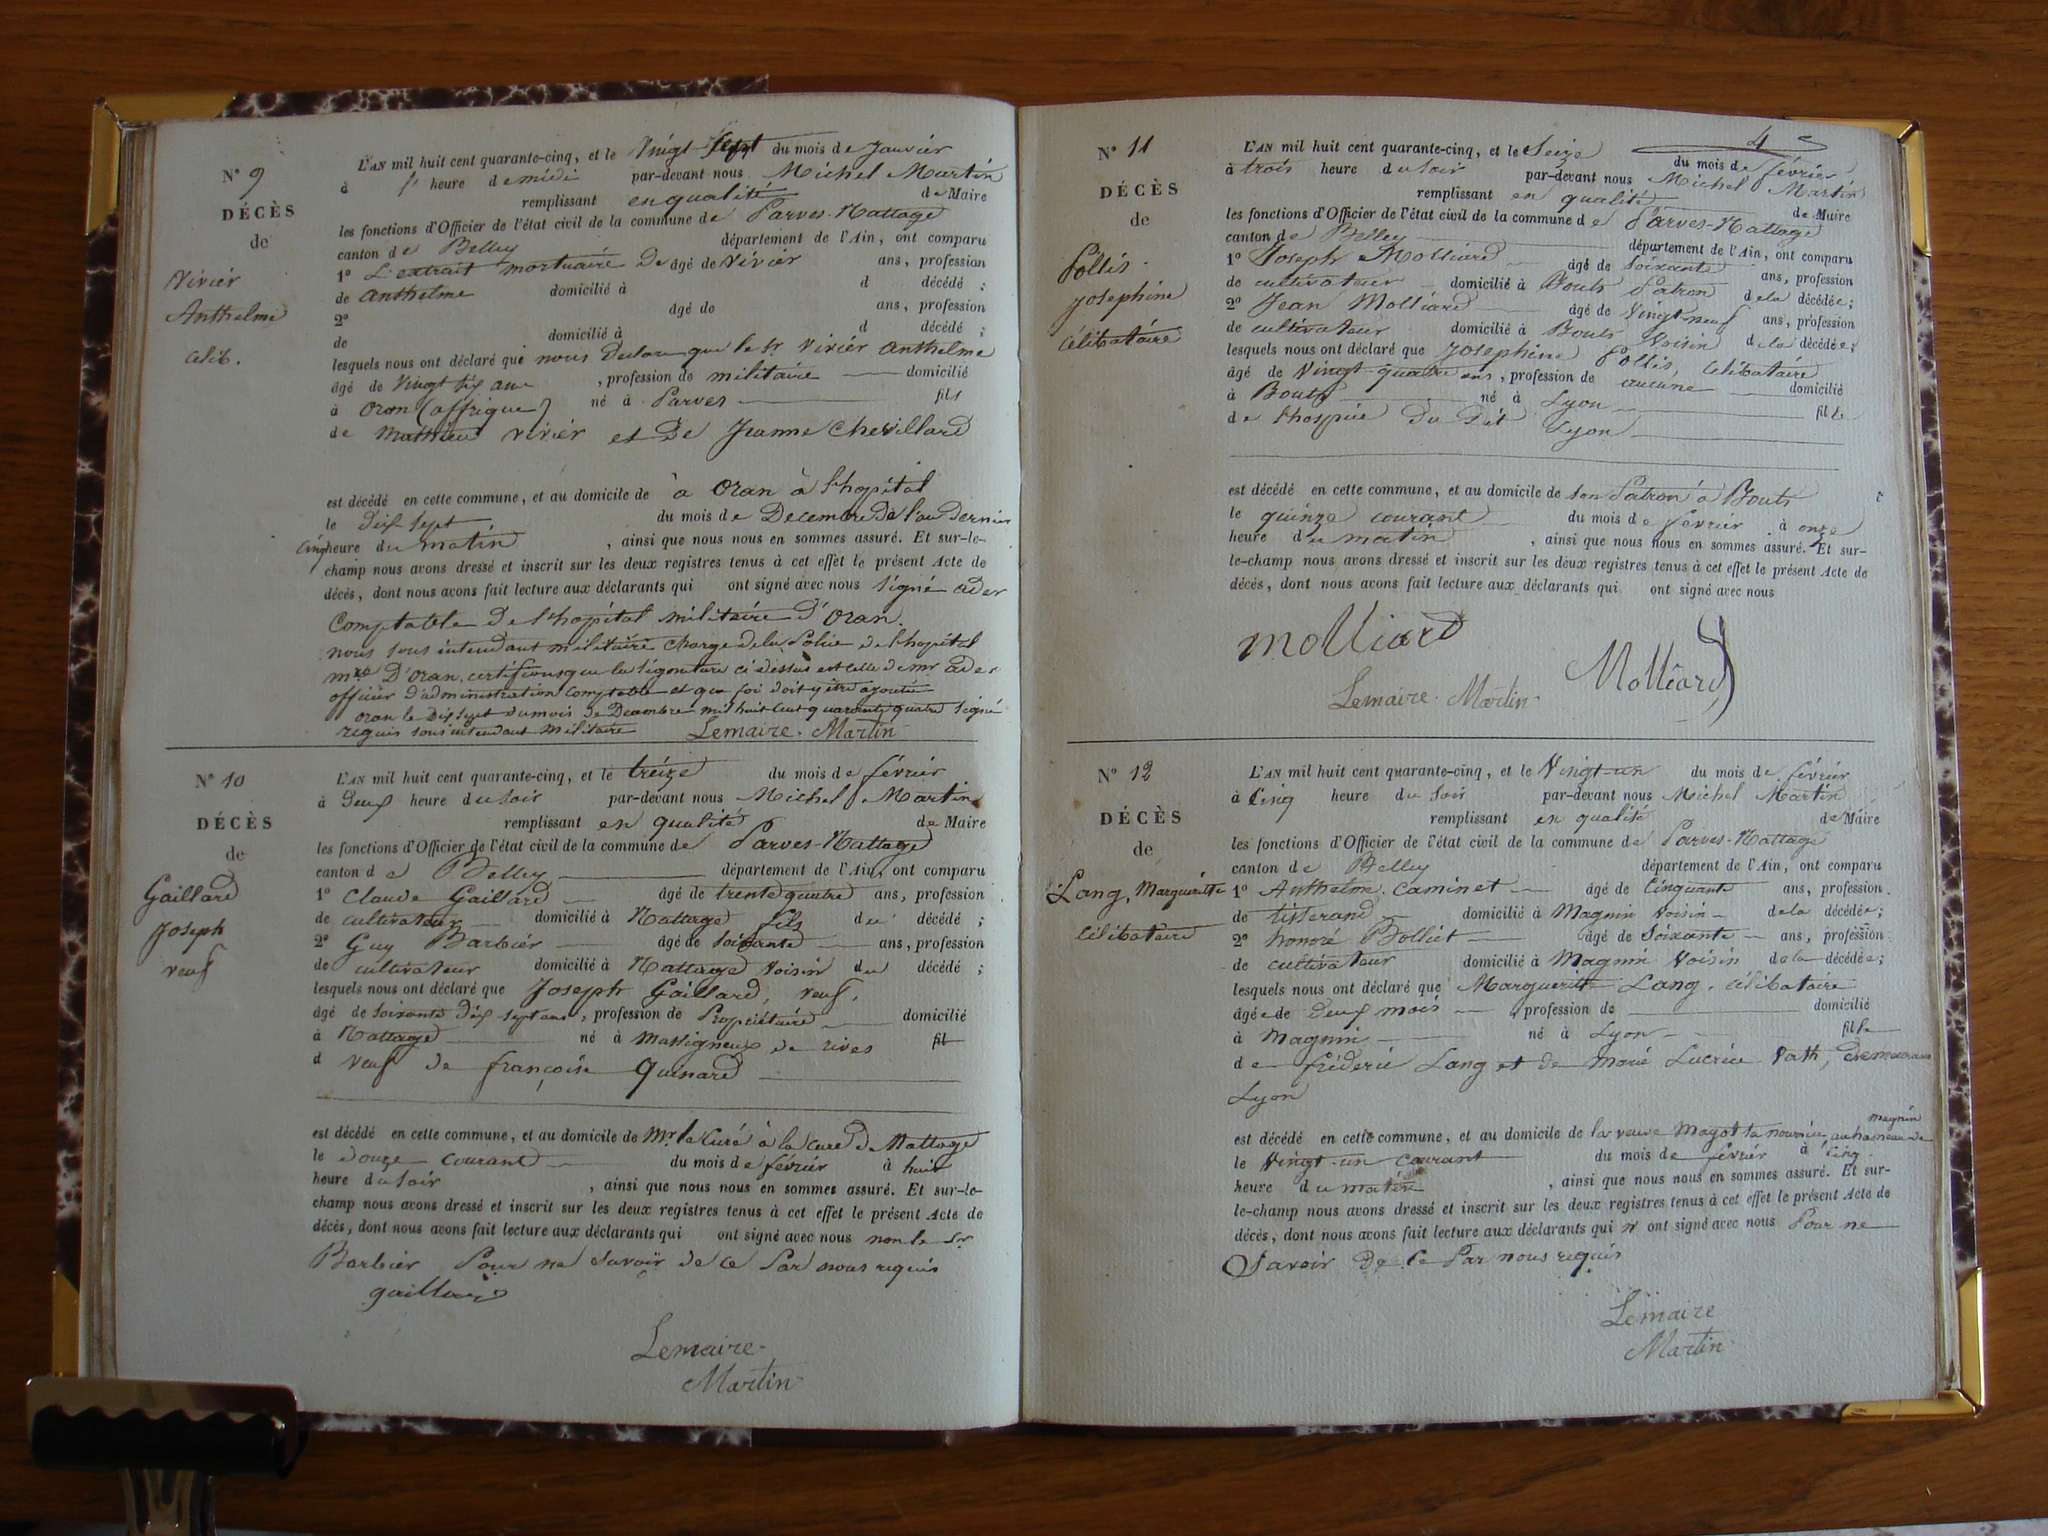 N° 9
DÉCÈS
de
Vivier
Anthelme
célib.
L'AN mil huit cent quarante-cinq, et le Vingt Sept du mois de Janvier
à heure de midi par-devant nous Michel Martin
remplissant en qualité de Maire
les fonctions d'Officier de l'état civil de la commune de Parves-Nattage
canton de Belley département de l'Ain, ont comparu
1° L'extrait mortuaire De âgé de Vivier ans, profession
de Anthelme domicilié à d décédé ;
2° âgé de ans, profession
de domicilié à d décédé ;
lesquels nous ont déclaré que nous Declare que le Sr Vivier Anthelme
âgé de Vingt six ans , profession de militaire domicilié
à Oran (affrique) né à Parves fils
de Mathieu Vivier et De Jeanne Chevillard
est décédé en cette commune, et au domicile de à Oran à l'hopital
le dix sept du mois de Decembre De l'an Dernier
cinq heure du matin , ainsi que nous nous en sommes assuré. Et sur-le-
champ nous avons dressé et inscrit sur les deux registres tenus à cet effet le présent Acte de
décès, dont nous avons fait lecture aux déclarants qui ont signé avec nous Signé ader
Comptable De L'hopital militaire D'Oran.
nous sous intendant militaire chargé de la Police de L'hopital
mre D'Oran, certifions que la signature ci dessus est celle de mr ader
officier d'administration comptable et que foi doit y être ajoutée
Oran le Dix Sept du mois de Decembre mil huit Cent quarante quatre Signé
requis sous intendant militaire Lemaire. Martin
N° 10
DÉCÈS
de
Gaillard
Joseph
veuf
L'AN mil huit cent quarante-cinq, et le treize du mois de février
à Deux heure du soir par-devant nous Michel Martin
remplissant en qualité de Maire
les fonctions d'Officier de l'état civil de la commune de Parves-Nattage
canton de Belley département de l'Ain, ont comparu
1° Claude Gaillard âgé de trente quatre ans, profession
de cultivateur domicilié à Nattage fils du décédé ;
2° Guy Barbier âgé de soixante ans, profession
de cultivateur domicilié à Nattage Voisin du décédé ;
lesquels nous ont déclaré que Joseph Gaillard, veuf,
âgé de soixante Dix sept ans , profession de Propriétaire domicilié
à Nattage né à Massigneux de rives fil
d veuf de françoise Quinard
est décédé en cette commune, et au domicile de Mr le Curé à la cure De Nattage
le Douze courant du mois de février à huit
heure du soir , ainsi que nous nous en sommes assuré. Et sur-le-
champ nous avons dressé et inscrit sur les deux registres tenus à cet effet le présent Acte de
décès, dont nous avons fait lecture aux déclarants qui ont signé avec nous non le Sr
Barbier Pour ne Savoir de ce Par nous requis
gaillard
Lemaire.
Martin
4
N° 11
DÉCÈS
de
Pollis
Josephine
Célibataire
L'AN mil huit cent quarante-cinq, et le Seize du mois de février
à trois heure du soir par-devant nous Michel Martin
remplissant en qualité de Maire
les fonctions d'Officier de l'état civil de la commune de Parves-Nattage
canton de Belley département de l'Ain, ont comparu
1° Joseph Molliard âgé de soixante ans, profession
de cultivateur domicilié à Bouts Patron de la décédée;
2° Jean Molliard âgé de Vingt neuf ans, profession
de cultivateur domicilié à Bouts Voisin de la décédée;
lesquels nous ont déclaré que Josephine Pollis, Célibataire
âgé de Vingt-quatre ans , profession de aucune domicilié
à Bouts né à Lyon fille
de L'hospice Du Dit Lyon
est décédé en cette commune, et au domicile de son Patron à Bouts
le quinze courant du mois de février à onze
heure du matin , ainsi que nous nous en sommes assuré. Et sur-
le-champ nous avons dressé et inscrit sur les deux registres tenus à cet effet le présent Acte de
décès, dont nous avons fait lecture aux déclarants qui ont signé avec nous
molliard
Molliard
Lemaire. Martin
N° 12
DÉCÈS
de
Lang, Margueritte
Célibataire
L'AN mil huit cent quarante-cinq, et le Vingt-un du mois de février
à Cinq heure du soir par-devant nous Michel Martin
remplissant en qualité de Maire
les fonctions d'Officier de l'état civil de la commune de Parves-Nattage
canton de Belley département de l'Ain, ont comparu
1° Anthelme Caminet âgé de Cinquante ans, profession
de tisserand domicilié à Magnin Voisin de la décédée;
2° honoré Bolliet âgé de Soixante ans, profession
de cultivateur domicilié à Magnin Voisin de la décédée;
lesquels nous ont déclaré que Marguerite Lang, célibataire
âgée de deux mois , profession de domicilié
à Magnin né à Lyon fille
de fréderic Lang et de Marie Lucrèce Vath,
Lyon
magnin
est décédé en cette commune, et au domicile de la veuve Magot sa nourrice, au hameau de
le Vingt-un courant du mois de février à cinq
heure du matin , ainsi que nous nous en sommes assuré. Et sur-
le-champ nous avons dressé et inscrit sur les deux registres tenus à cet effet le présent Acte de
décès, dont nous avons fait lecture aux déclarants qui n'ont signé avec nous Pour ne
Savoir De Ce Par nous requis
Lemaire
Martin